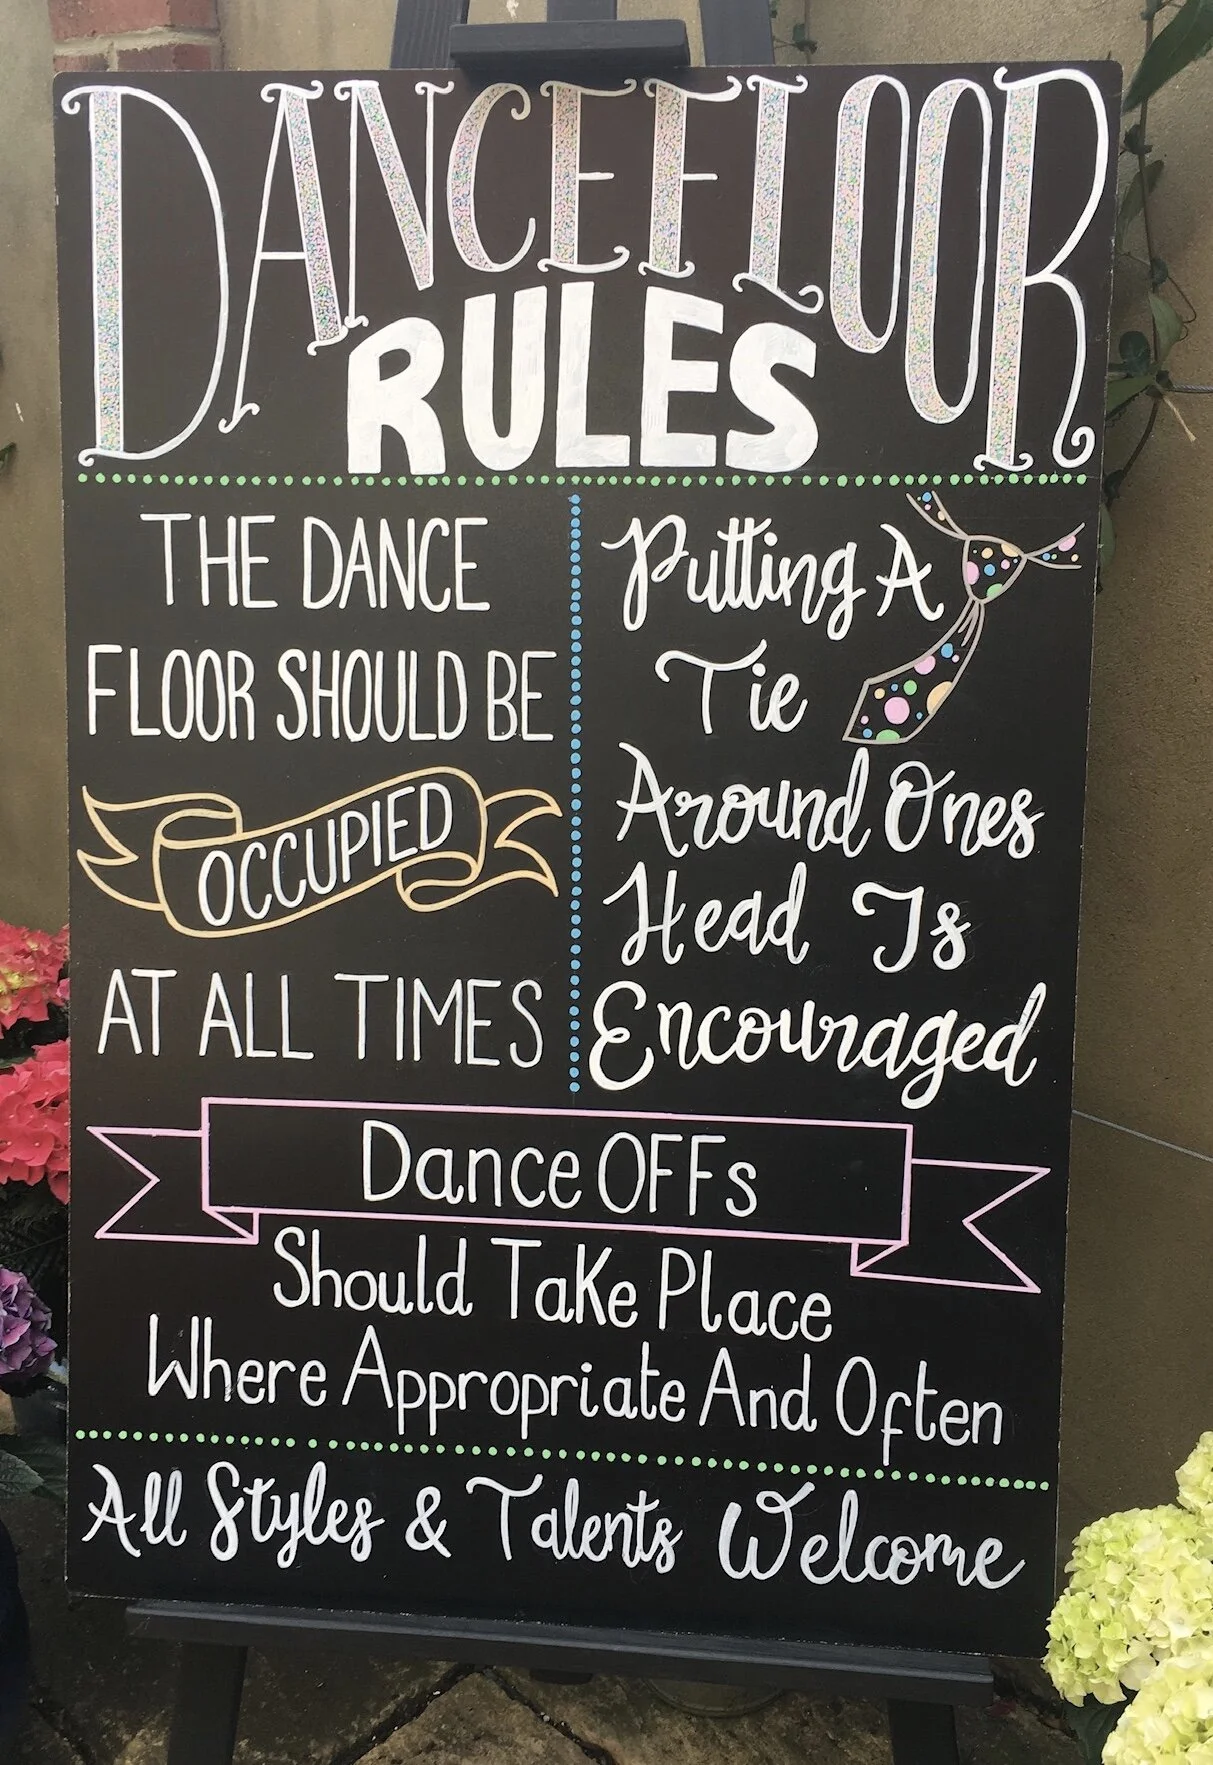 DANCEFLOOR
RULES
THE DANCE
FLOOR SHOULD BE
OCCUPIED
AT ALL TIMES
Putting A
Tie
Around Ones
Head Is
Encouraged
Dance OFFs
Should Take Place
Where Appropriate And Often
All Styles & Talents Welcome